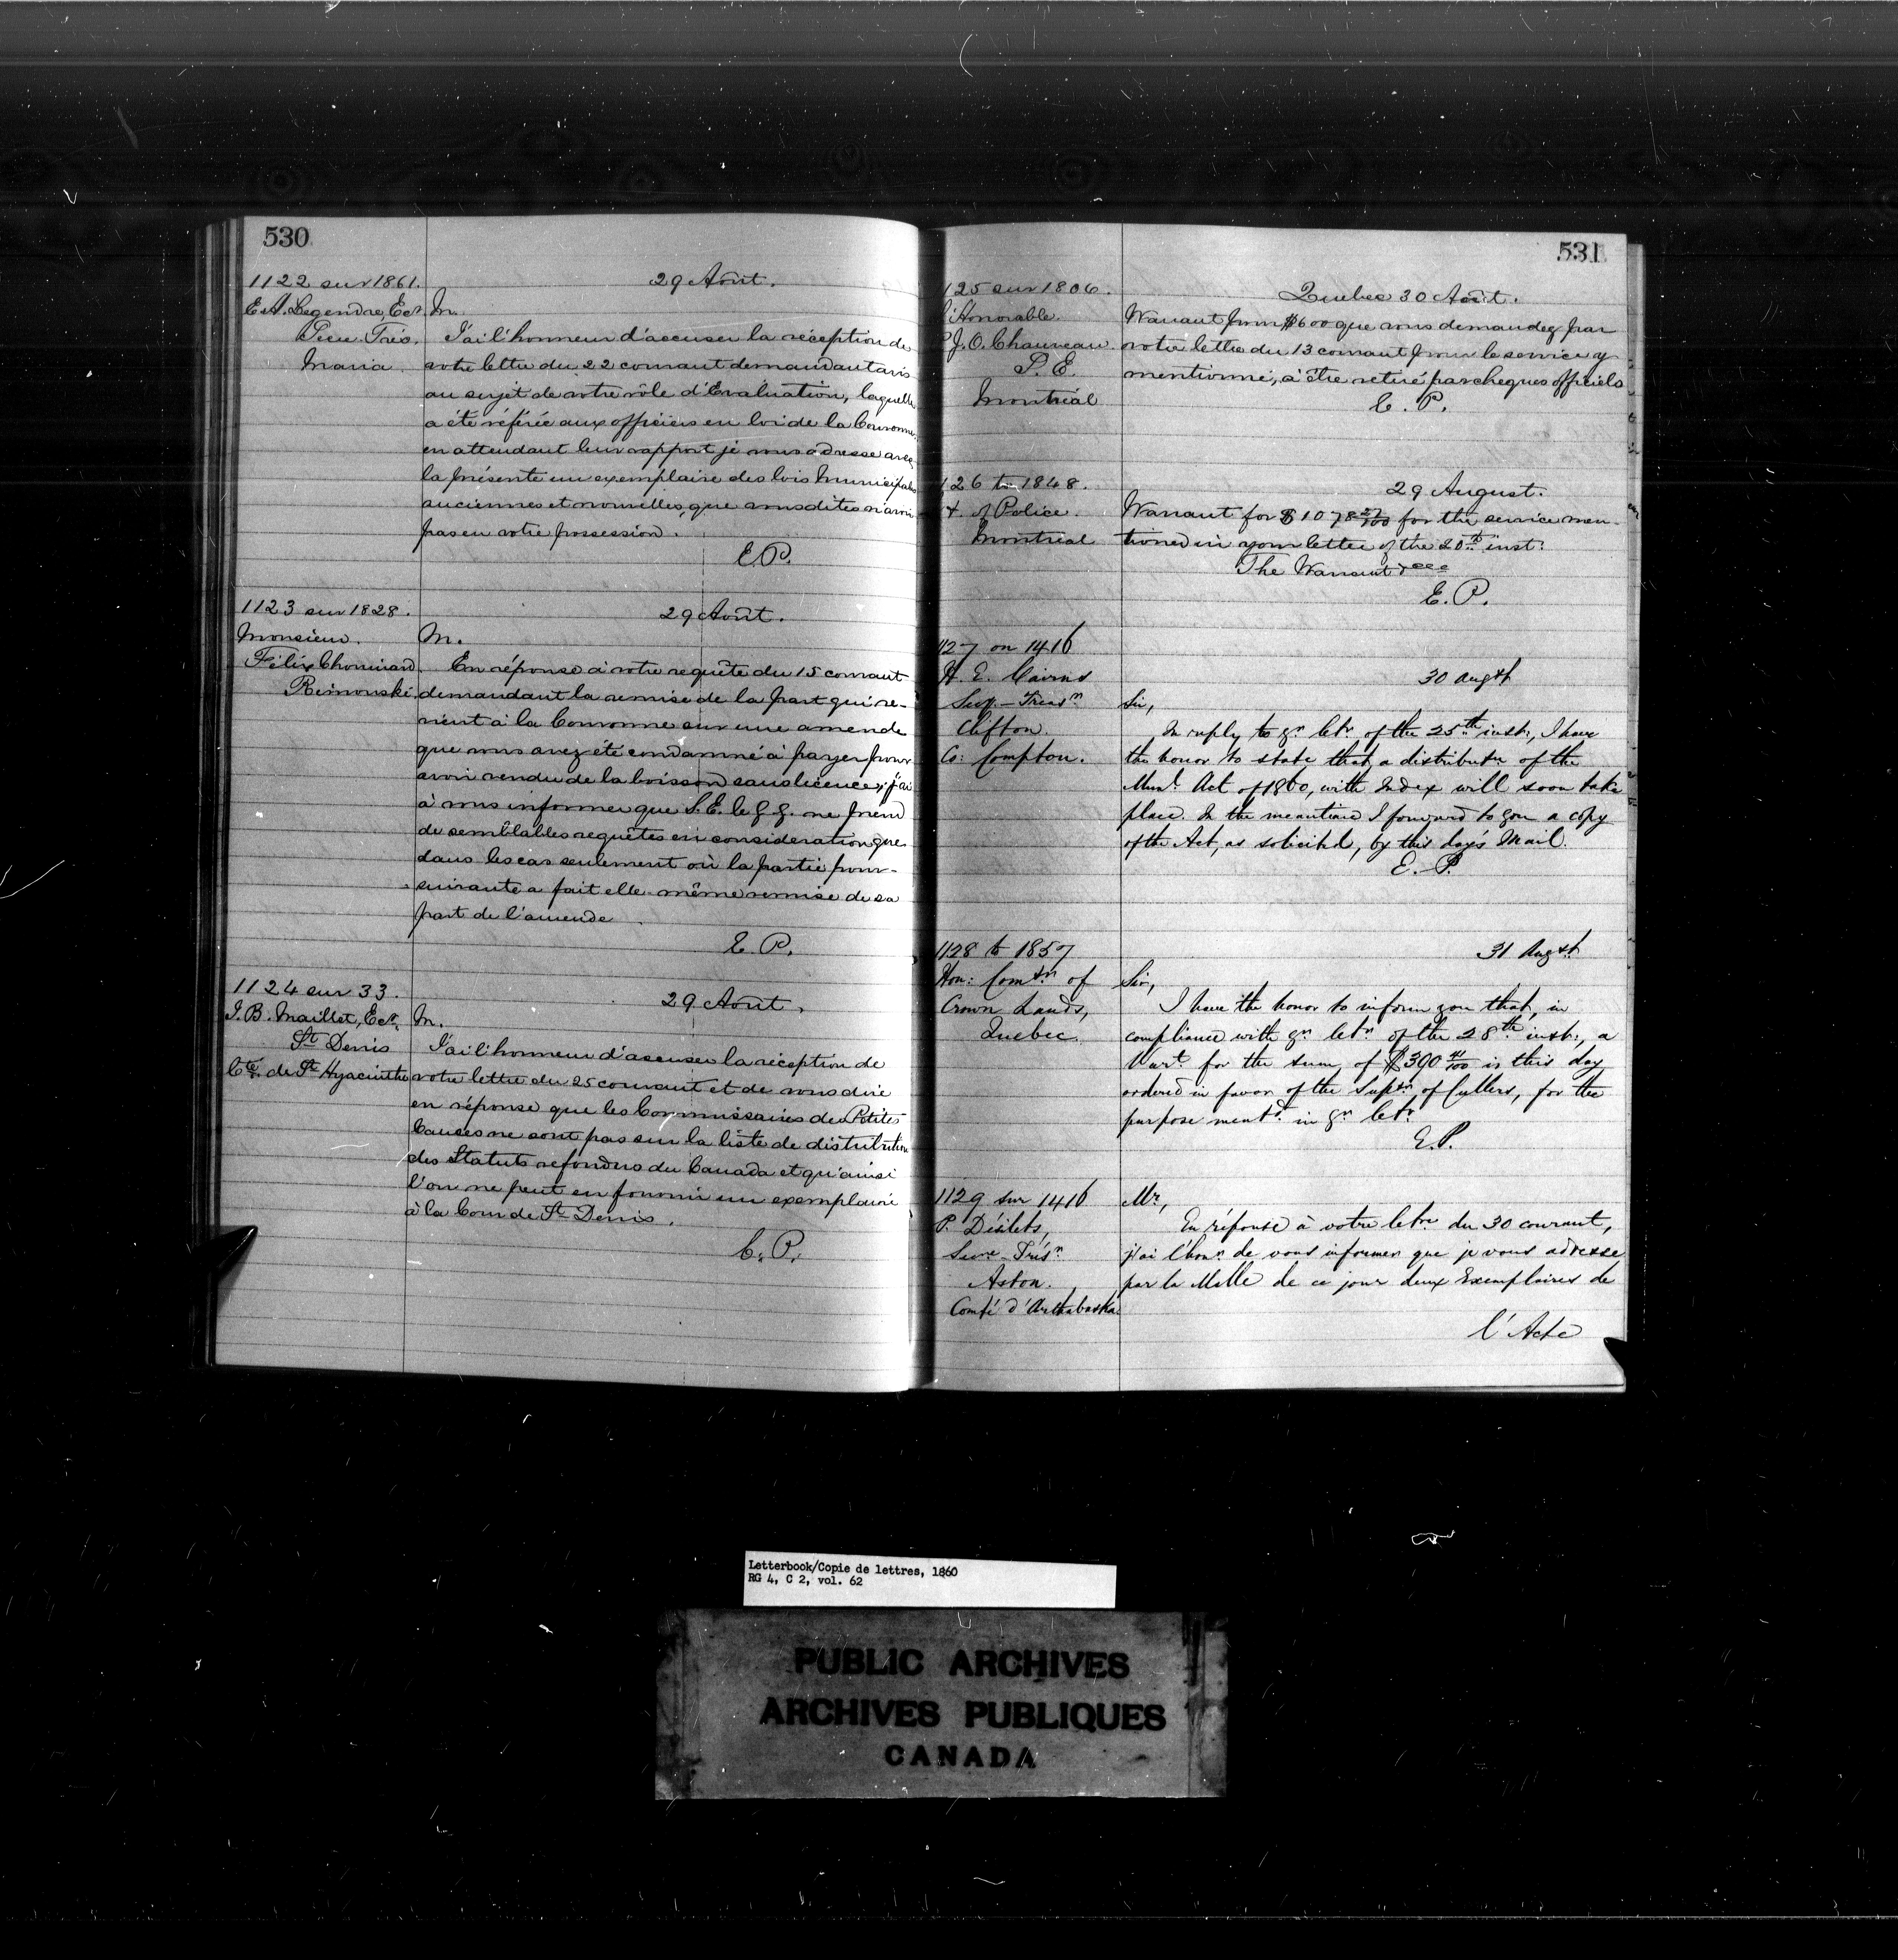 530
1122 sur 1861.
29 Août.
E. A. Legendre, Ecr.
Secr. Trés.
Maria.
M.
J'ai l'honneur d'accuser la réception de
votre lettre du 22 courant demandant avis
au sujet de votre rôle d'Evaluation, laquelle
a été référée aux officiers en loi de la Couronne,
en attendant leur rapport je vous adresse avec
la présente un exemplaire des lois Municipales
anciennes et nouvelles, que vous dites n'avoir
pas en votre possession.
E.P.
1123 sur 1828.
29 Août.
Monsieur.
Félix Chouinard
Rimouski.
M.
En réponse à votre requête du 15 courant
demandant la remise de la part qui re-
vient à la Couronne sur une amende
que vous avez été condamné à payer pour
avoir vendu de la boisson sans licence; j'ai
à vous informer que S. E. le G. G. ne prend
de semblables requêtes en considération que
dans les cas seulement où la partie pour-
suivante a fait elle-même remise de sa
part de l'amende
E. P.
1124 sur 33.
29 Août.
J. B. Maillet, Ecr.
St Denis
Cté. de St Hyacinthe
M.
J'ai l'honneur d'accuser la réception de
votre lettre du 25 courant et de vous dire
en réponse que les Commissaires des Petites
Causes ne sont pas sur la liste de distribution
des Statuts refondus du Canada et qu'ainsi
l'on ne peut en fournir un exemplaire
à la Cour de St Denis.
E. P.
531
125 sur 1806.
Quebec 30 Août.
l'Honorable.
P. J. O. Chauveau.
S. E.
Montréal
Warrant pour $600 que vous demandez par
votre lettre du 13 courant pour le service y
mentionné, à être retiré par cheques officiels
E. P.
126 to 1848.
29 August.
of Police.
Montreal
Warrant for $1078 27/100 for the service men-
tioned in your letter of the 20th inst:
The Warrant &ccc
E. P.
1127 on 1416
30 Augst
H. E. Cairns
Secy-Treasr
Clifton.
Co: Compton.
Sir,
In reply to yr letr of the 25th inst:, I have
the honor to state that a distributn of the
Munl Act of 1860, with Index will soon take
place. In the meantime I forward to you a copy
of the Act, as solicited, by this day's Mail.
E. P.
1128 to 1857
31 Augst
Hon: Comsr of
Crown Lands,
Quebec.
Sir,
I have the honor to inform you that, in
compliance with yr letr of the 28th inst:, a
Warrt for the sum of $390 41/100 is this day
ordered in favor of the Supr of Cullers, for the
purpose mentd in yr letr
E.P.
1129 sur 1416
P. Désilets,
Secre-Trésr
Aston.
Comté d'Arthabaska
Mr,
En réponse à votre letre du 30 courant,
j'ai l'honr de vous informer que je vous adresse
par la Malle de ce jour deux Exemplaires de
l'Acte
Letterbook/Copie de lettres, 1860
RG 4, C 2, vol. 62
PUBLIC ARCHIVES
ARCHIVES PUBLIQUES
CANADA